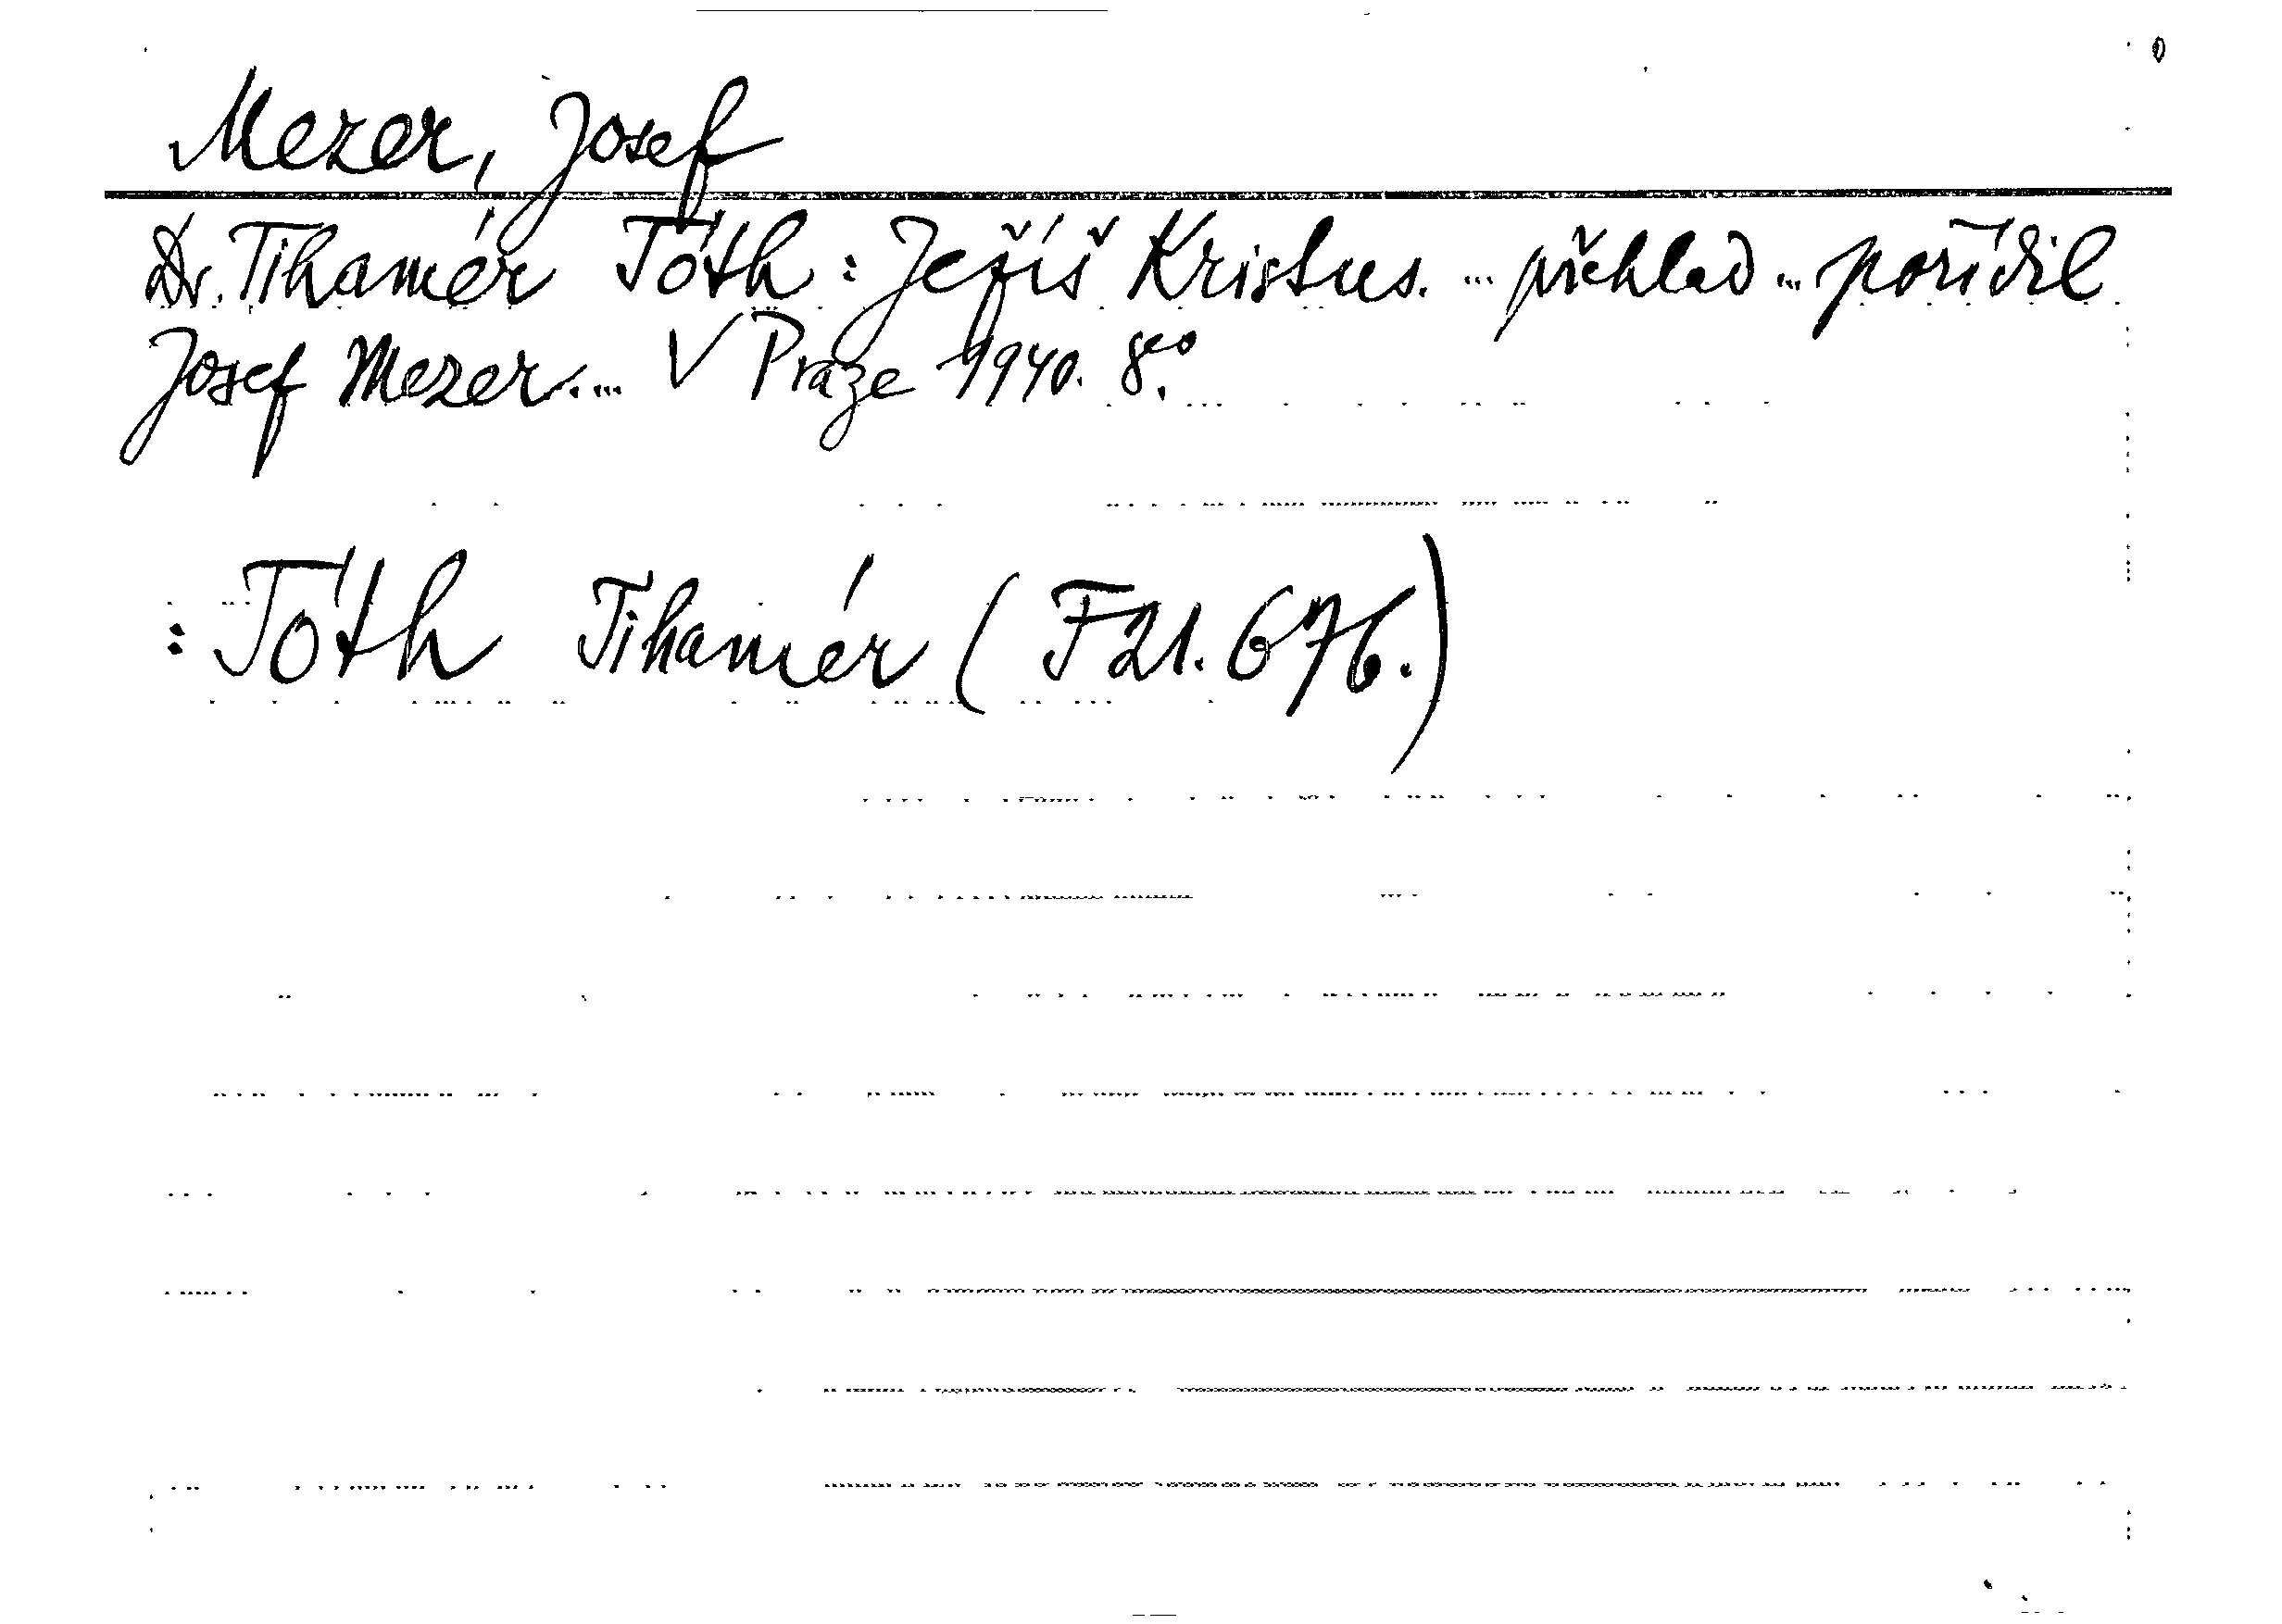 Mezer, Josef
Dr. Tihamér Tóth: Ježíš Kristus. ... přehlad ... pořídil
Josef Mezer.... V Praze 1940. 8°.
: Tóth Tihamér (F 21. 676.)